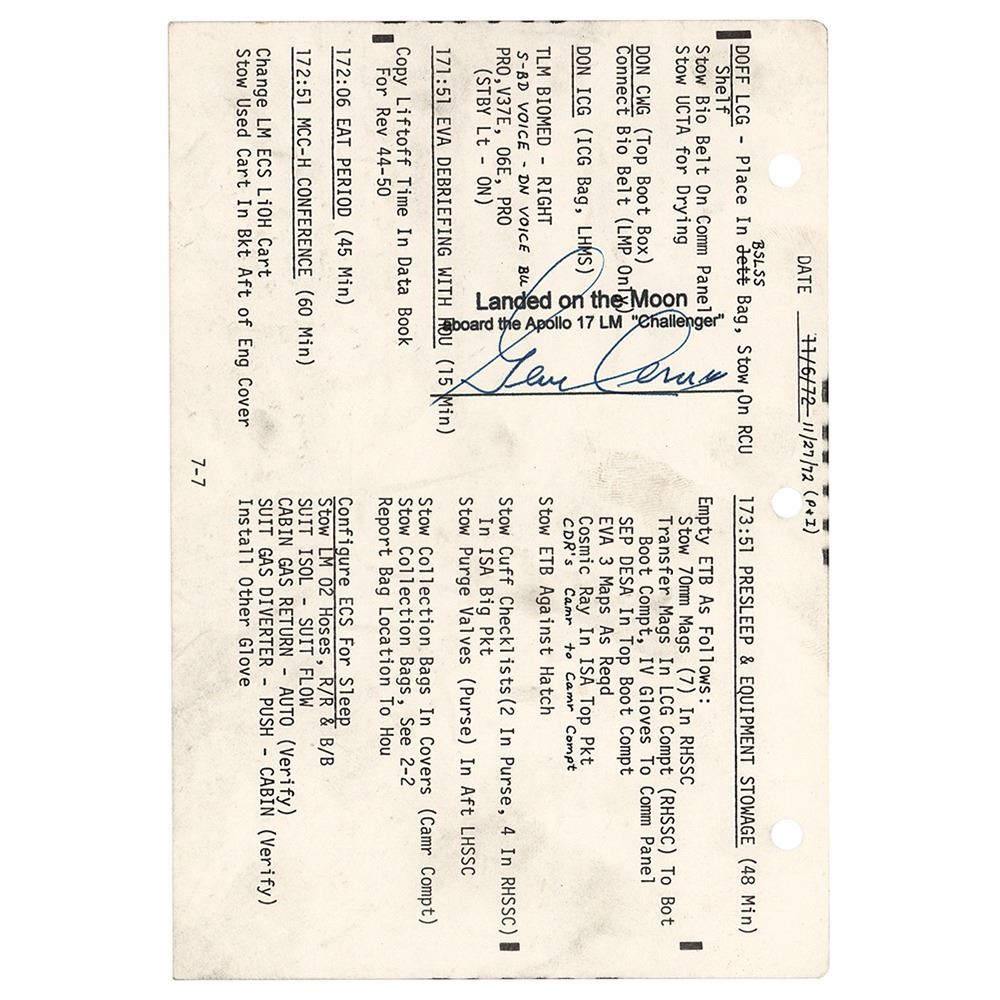 DATE 11/6/72 11/27/72 (P+I)
BSLSS
DOFF LCG - Place In Jett Bag, Stow On RCU
Shelf
Stow Bio Belt On Comm Panel
Stow UCTA for Drying
DON CWG (Top Boot Box)
Connect Bio Belt (LMP Only)
DON ICG (ICG Bag, LHMS)
TLM BIOMED - RIGHT
S-BD VOICE - DN VOICE BU
PRO,V37E, 06E, PRO
(STBY Lt - ON)
171:51 EVA DEBRIEFING WITH HOU (15 Min)
Copy Liftoff Time In Data Book
For Rev 44-50
172:06 EAT PERIOD (45 Min)
172:51 MCC-H CONFERENCE (60 Min)
Change LM ECS LiOH Cart
Stow Used Cart In Bkt Aft of Eng Cover
Landed on the Moon
aboard the Apollo 17 LM "Challenger"
Gene Cernan
173:51 PRESLEEP & EQUIPMENT STOWAGE (48 Min)
Empty ETB As Follows:
Stow 70mm Mags (7) In RHSSC
Transfer Mags In LCG Compt (RHSSC) To Bot
Boot Compt, IV Gloves To Comm Panel
SEP DESA In Top Boot Compt
EVA 3 Maps As Reqd
Cosmic Ray In ISA Top Pkt
CDR's Camr to Camr Compt
Stow ETB Against Hatch
Stow Cuff Checklists(2 In Purse, 4 In RHSSC)
In ISA Big Pkt
Stow Purge Valves (Purse) In Aft LHSSC
Stow Collection Bags In Covers (Camr Compt)
Stow Collection Bags, See 2-2
Report Bag Location To Hou
Configure ECS For Sleep
Stow LM O2 Hoses, R/R & B/B
SUIT ISOL - SUIT FLOW
CABIN GAS RETURN - AUTO (Verify)
SUIT GAS DIVERTER - PUSH - CABIN (Verify)
Install Other Glove
7-7